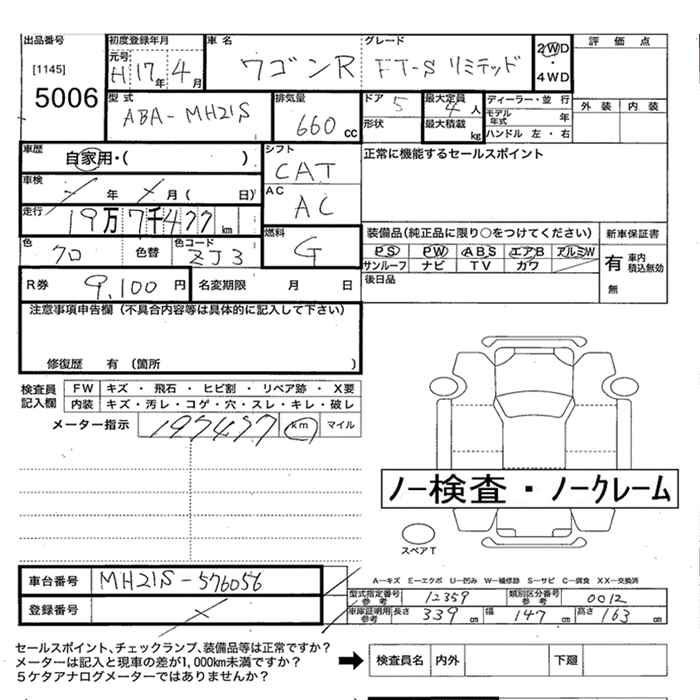 出品番号 初度登録年月 車名 グレード 評価点
[1145] 元号 H17年4月 ワゴンR FT-S リミテッド 2WD・4WD
5006
型式 ABA-MH21S 排気量 660cc ドア 5 形状 最大定員 4人 最大積載 kg ディーラー・並行 モデル年式 年 ハンドル 左・右 外装 内装
車歴 自家用・( ) シフト CAT 正常に機能するセールスポイント
車検 年 月( 日) AC AC
走行 19万7千477km 装備品(純正品に限り○をつけてください) 新車保証書
色 クロ 色替 色コード ZJ3 燃料 G PS PW ABS エアB アルミW 有 車内積込無効
サンルーフ ナビ TV カワ 無
R券 9,100円 名変期限 月 日 後日品
注意事項申告欄(不具合内容等は具体的に記入して下さい)
修復歴 有(箇所 )
検査員記入欄 FW キズ・飛石・ヒビ割・リペア跡・X要
内装 キズ・汚レ・コゲ・穴・スレ・キレ・破レ
メーター指示 197477 km マイル
ノー検査・ノークレーム
スペアT
車台番号 MH21S-576056 A-キズ E-エクボ U-凹み W-補修跡 S-サビ C-腐食 XX-交換済
登録番号 型式指定番号 参考 12359 類別区分番号 参考 0012
車庫証明用 参考 長さ 339cm 幅 147cm 高さ 163cm
セールスポイント、チェックランプ、装備品等は正常ですか?
メーターは記入と現車の差が1,000km未満ですか? 検査員名 内外 下廻
5ケタアナログメーターではありませんか?